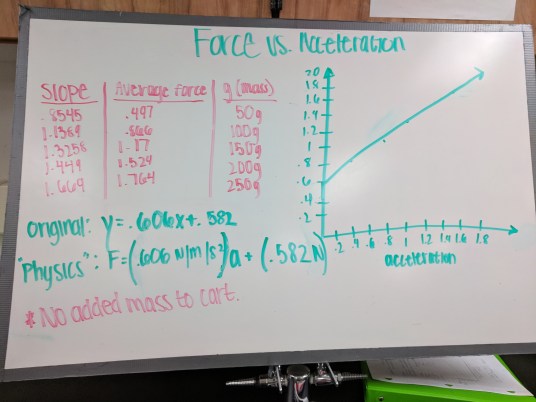 Force vs. Acceleration
Slope | Average Force | g (mass)
.8545 | .497 | 50g
1.1384 | .866 | 100g
1.3258 | 1.17 | 150g
1.449 | 1.529 | 200g
1.669 | 1.764 | 250g
original: Y=.606x+.582
"Physics": F=(.606 N/m/s²)a+(.582N)
* No added mass to cart.
20
1.8
1.6
1.4
1.2
1
.8
.6
.4
.2
.2 .4 .6 .8 1 1.2 1.4 1.6 1.8
acceleration